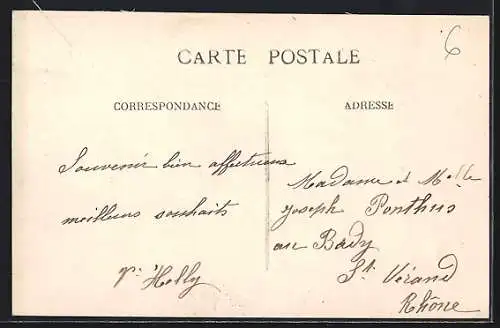 6
CARTE POSTALE
CORRESPONDANCE
Souvenir bien affectueux
meilleurs souhaits
ADRESSE
Madame et Melle
Joseph Ponthus
au Bady
St. Vérand
Rhône